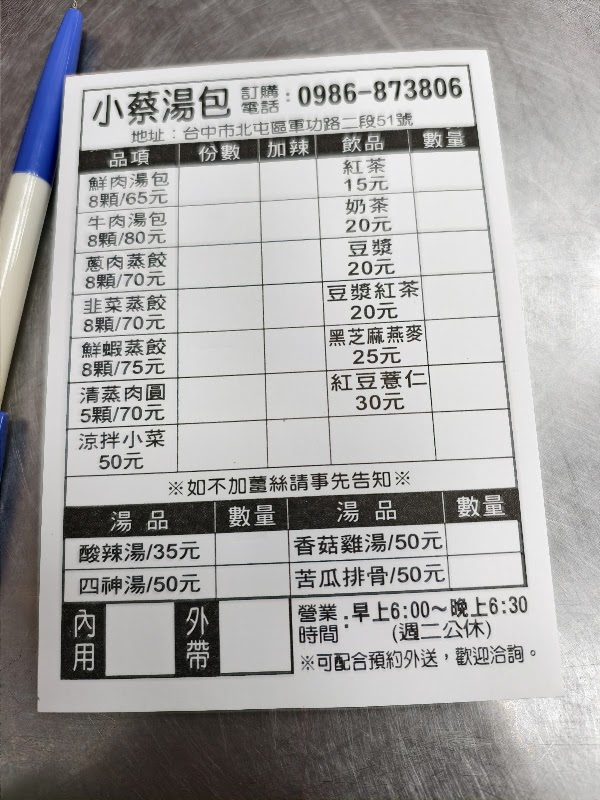 小蔡湯包 訂購電話：0986-873806
地址：台中市北屯區軍功路二段51號
品項 份數 加辣 飲品 數量
鮮肉湯包 紅茶
8顆/65元 15元
牛肉湯包 奶茶
8顆/80元 20元
蔥肉蒸餃 豆漿
8顆/70元 20元
韭菜蒸餃 豆漿紅茶
8顆/70元 20元
鮮蝦蒸餃 黑芝麻燕麥
8顆/75元 25元
清蒸肉圓 紅豆薏仁
5顆/70元 30元
涼拌小菜
50元
※如不加薑絲請事先告知※
湯品 數量 湯品 數量
酸辣湯/35元 香菇雞湯/50元
四神湯/50元 苦瓜排骨/50元
內用 外帶
營業時間：早上6:00～晚上6:30
(週二公休)
※可配合預約外送，歡迎洽詢。